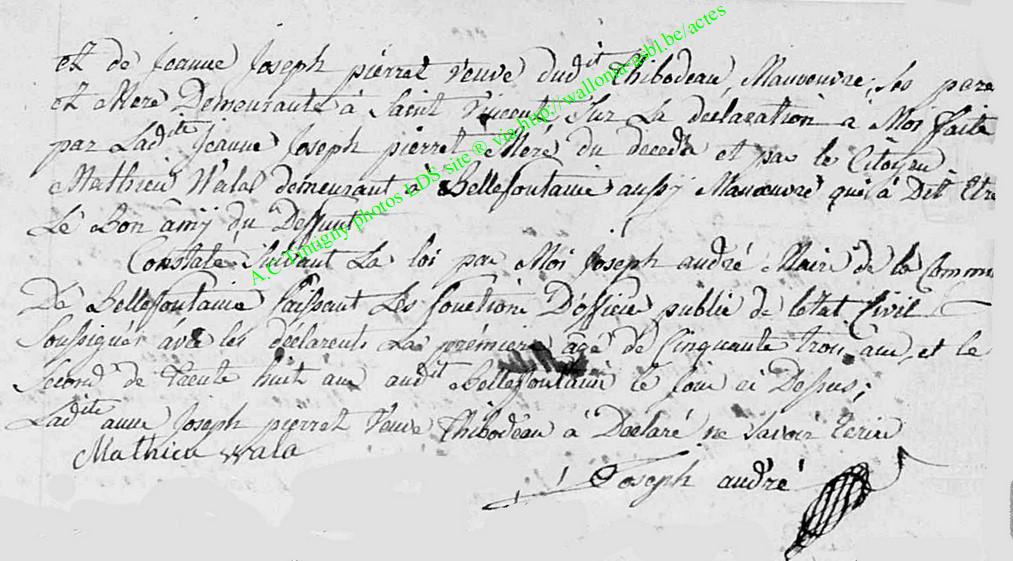 et de jeanne joseph pierret veuve dudit Thibodeau, Manoeuvre, ses pere
et Mere Demeurants à Saint Vincent, Sur La déclaration à Moi faite
par Ladite jeanne joseph pierret Mere du decedé et par le Citoyen
Mathieu Walal demeurant à Bellefontaine aussy Manoeuvre qui à Dit Etre
Le Bon amy du Deffunt
Constaté Suivant La loi par Moi joseph andré Maire de la Commune
De Bellefontaine faissant Les fonction D'officier public de letat Civil
Soussignés avec les déclarents La prémiere âgé de Cinquante trois ans, et le
Second de trente huit ans audit Bellefontaine le jour ci Dessus;
Ladite anne joseph pierret Veuve Thibodeau à Declaré ne Savoir Ecrire
Mathieu Wala
Joseph andré
A.C Tintigny photos LDS site ® via http://wallonia-asbl.be/actes